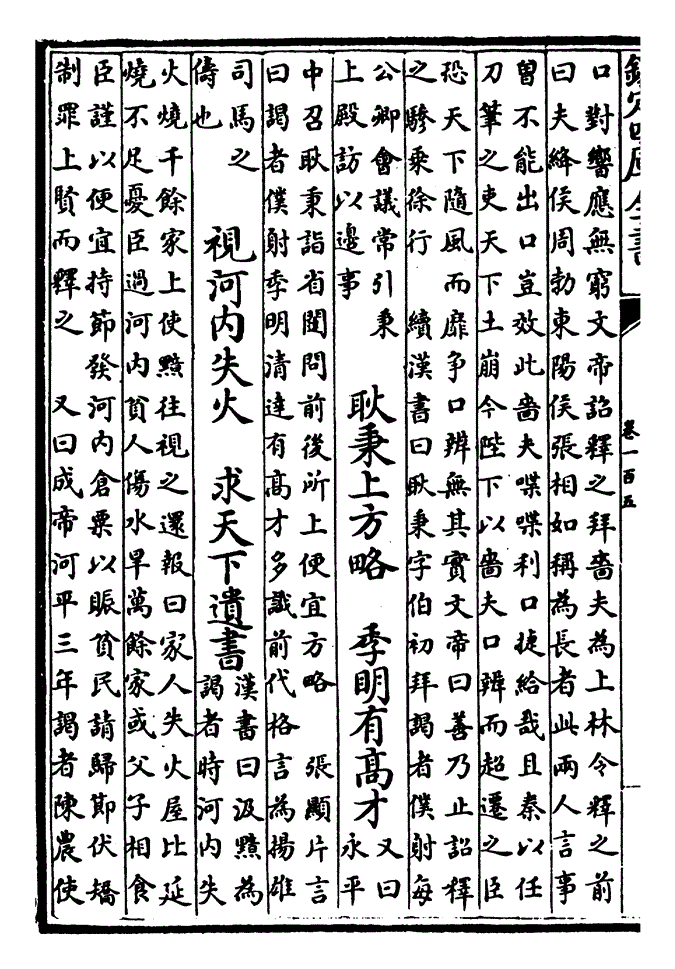 欽定四庫全書
卷一百五
口對響應無窮文帝詔釋之拜嗇夫為上林令釋之前
曰夫絳侯周勃東陽侯張相如稱為長者此兩人言事
曾不能出口豈效此嗇夫喋喋利口捷給哉且秦以任
刀筆之吏天下土崩今陛下以嗇夫口辯而超遷之臣
恐天下隨風而靡爭口辨無其實文帝曰善乃止詔釋
之驂乘徐行　續漢書曰耿秉字伯初拜謁者僕射每
公卿會議常引秉
上殿訪以邊事
耿秉上方略　季明有髙才
又曰
永平
中召耿秉詣省闥問前後所上便宜方略　張顯片言
曰謁者僕射季明清達有髙才多識前代格言為揚雄
司馬之
儔也
視河内失火　求天下遺書
漢書曰汲黯為
謁者時河内失
火燒千餘家上使黯往視之還報曰家人失火屋比延
燒不足憂臣過河内貧人傷水旱萬餘家或父子相食
臣謹以便宜持節發河内倉粟以賑貧民請歸節伏矯
制罪上賢而釋之　又曰成帝河平三年謁者陳農使